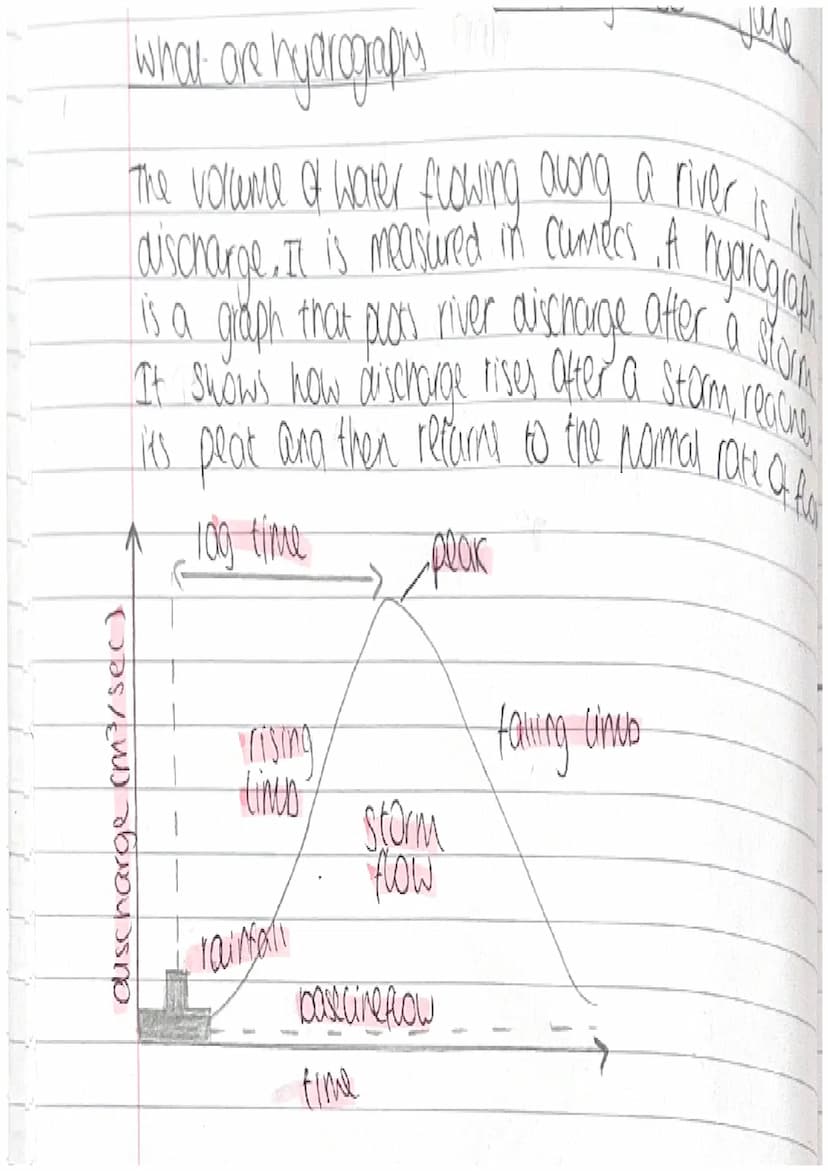 June
What are hydrographs
The volume of water flowing along a river is its
discharge. It is measured in cumecs. A hydrograph
is a graph that plots river discharge after a storm
It shows how discharge rises after a storm, reaches
its peak and then returns to the normal rate of flow
lag time
peak
discharge (m³/sec)
rising
limb
falling limb
storm
flow
rainfall
baselineflow
time